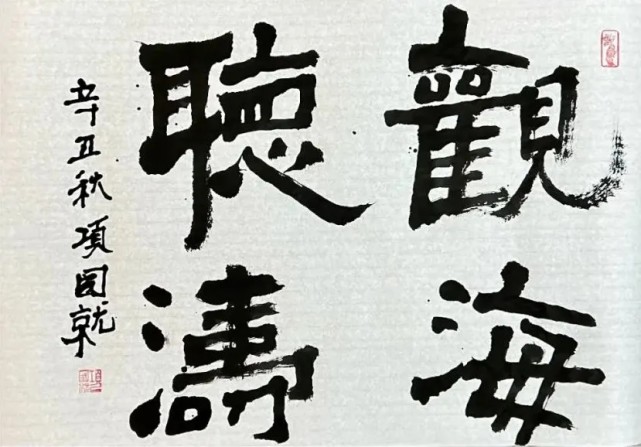 觀海
聽濤
辛丑秋項国就